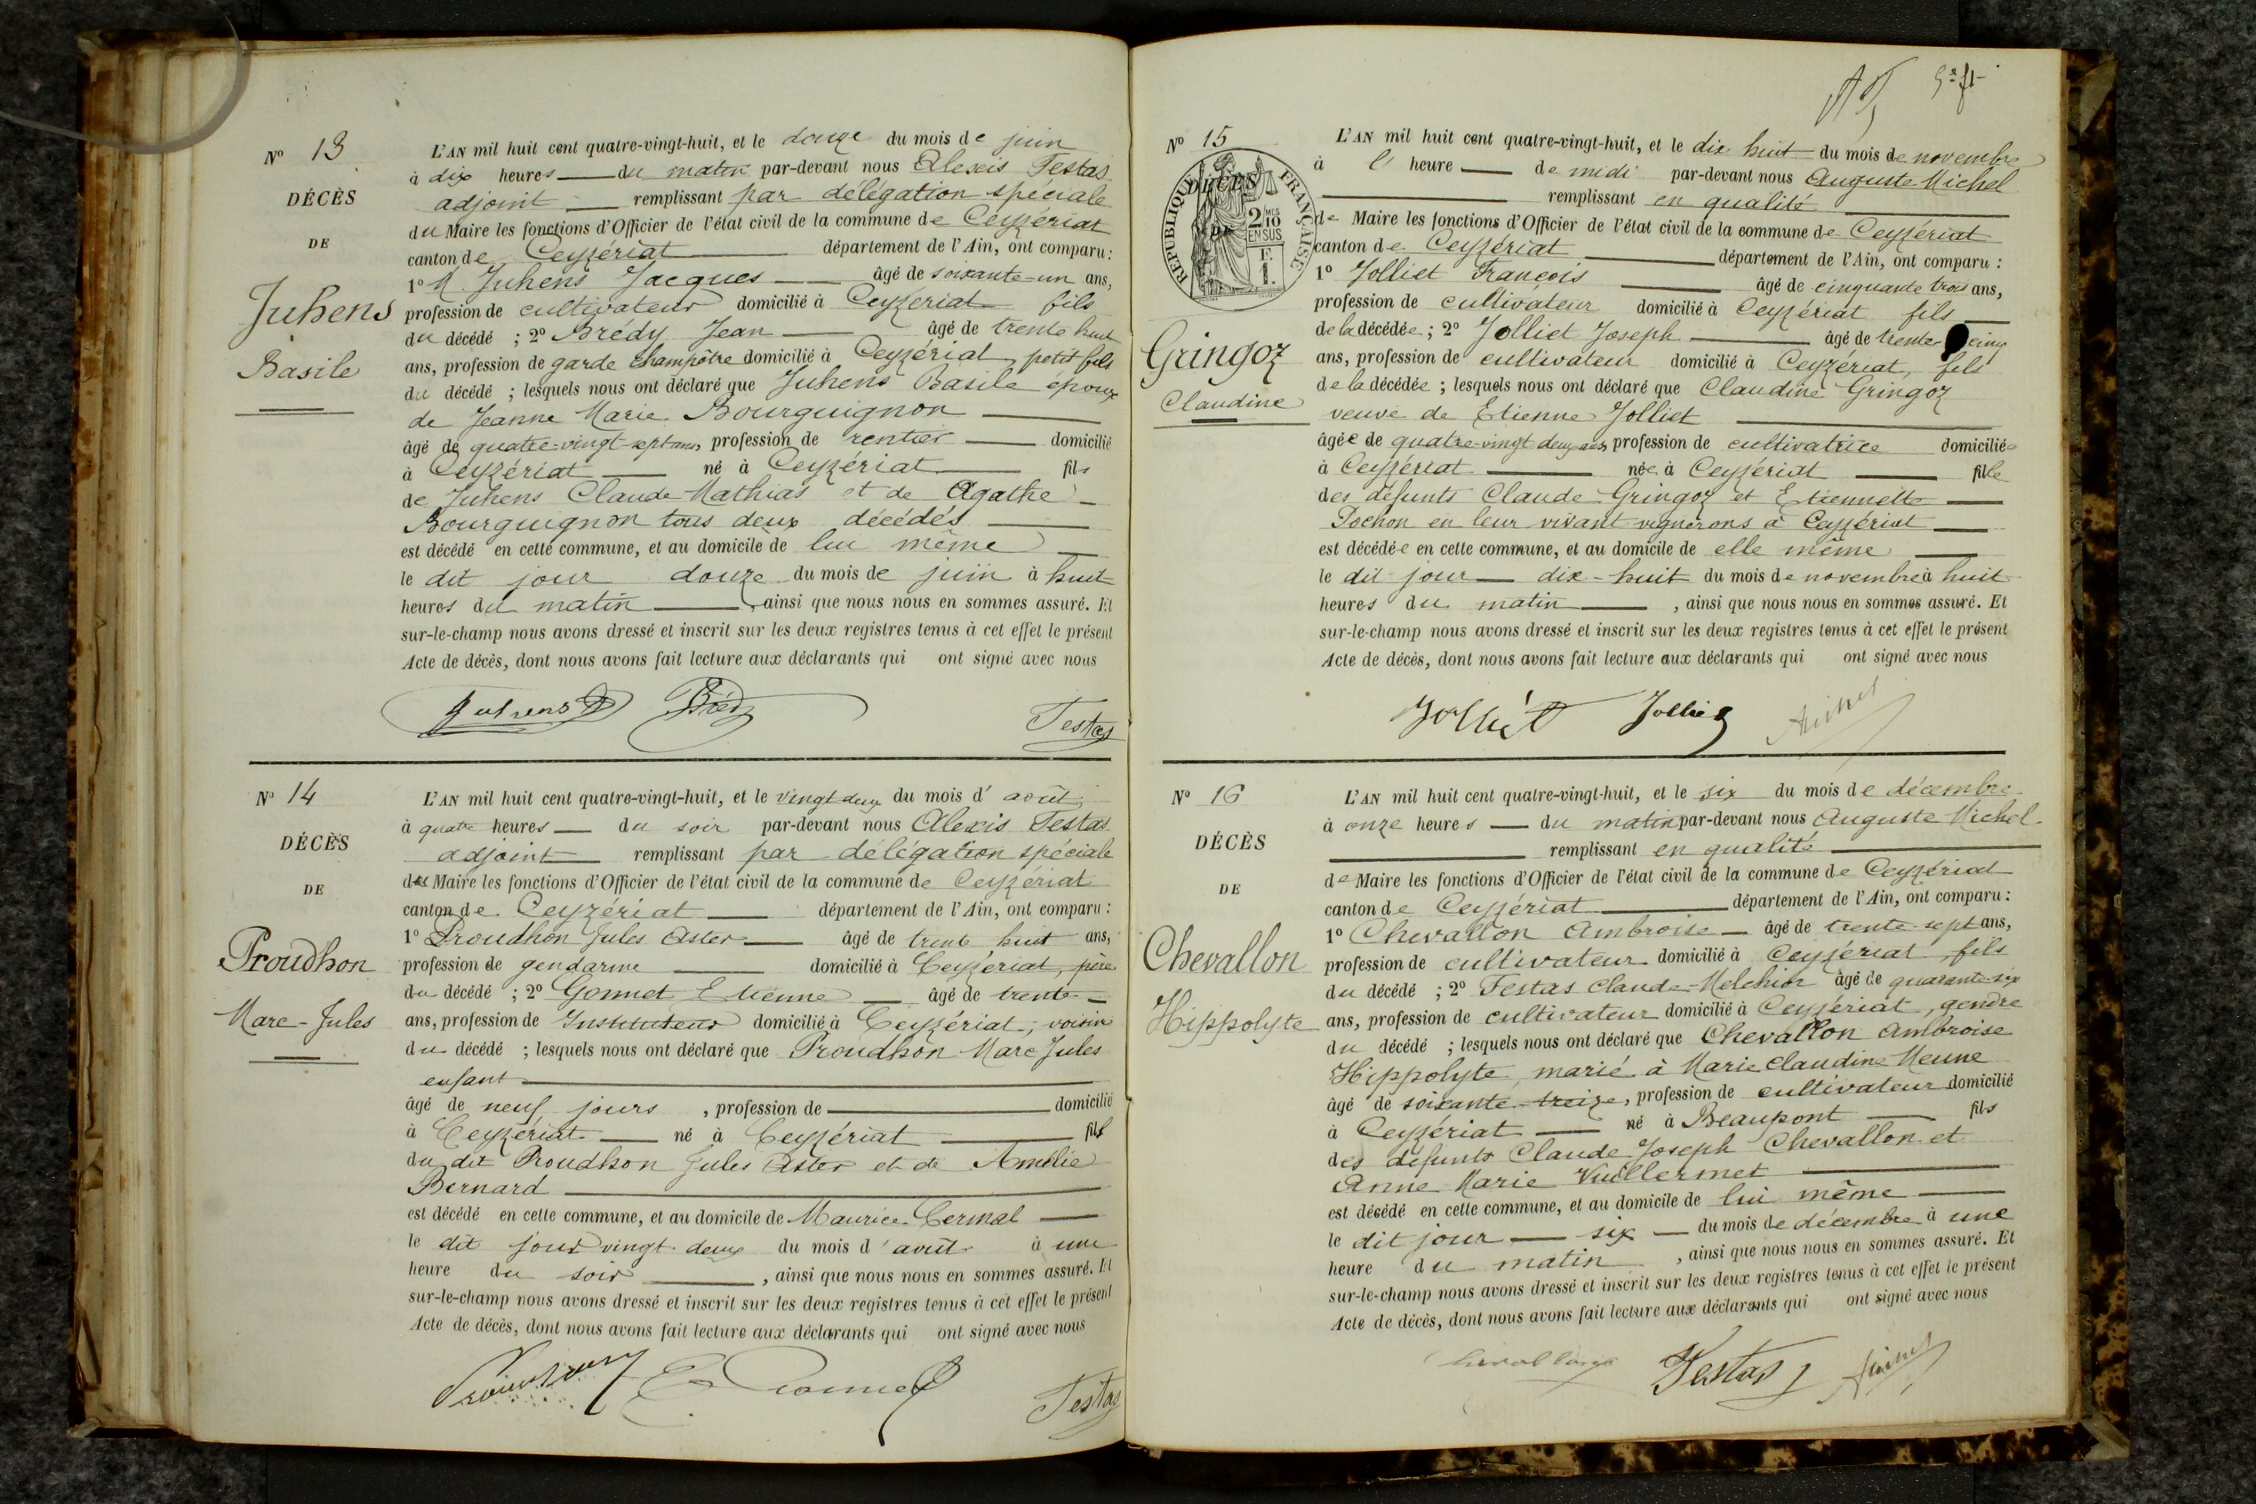 N° 13
DÉCÈS
DE
Juhens
Basile
L'AN mil huit cent quatre-vingt-huit, et le douze du mois de juin
à dix heures du matin par-devant nous Alexis Festas
adjoint remplissant par délégation spéciale
du Maire les fonctions d'Officier de l'état civil de la commune de Ceyzériat
canton de Ceyzériat département de l'Ain, ont comparu :
1° M. Juhens Jacques âgé de soixante-un ans,
profession de cultivateur domicilié à Ceyzériat fils
du décédé ; 2° Brédy Jean âgé de trente huit
ans, profession de garde champêtre domicilié à Ceyzériat, petit fils
du décédé ; lesquels nous ont déclaré que Juhens Basile époux
de Jeanne Marie Bourguignon
âgé de quatre-vingt-sept ans, profession de rentier domicilié
à Ceyzériat né à Ceyzériat fils
de Juhens Claude Mathias et de Agathe
Bourguignon tous deux décédés
est décédé en cette commune, et au domicile de lui même
le dit jour douze du mois de juin à huit
heures du matin, ainsi que nous nous en sommes assuré. Et
sur-le-champ nous avons dressé et inscrit sur les deux registres tenus à cet effet le présent
Acte de décès, dont nous avons fait lecture aux déclarants qui ont signé avec nous
Juhens Brédy Festas
N° 14
DÉCÈS
DE
Proudhon
Marc-Jules
L'AN mil huit cent quatre-vingt-huit, et le vingt deux du mois d'août
à quatre heures du soir par-devant nous Alexis Festas
adjoint remplissant par délégation spéciale
du Maire les fonctions d'Officier de l'état civil de la commune de Ceyzériat
canton de Ceyzériat département de l'Ain, ont comparu :
1° Proudhon Jules Aster âgé de trente huit ans,
profession de gendarme domicilié à Ceyzériat, père
du décédé ; 2° Gonnet Etienne âgé de trente
ans, profession de Instituteur domicilié à Ceyzériat, voisin
du décédé ; lesquels nous ont déclaré que Proudhon Marc Jules
enfant
âgé de neuf jours, profession de domicilié
à Ceyzériat né à Ceyzériat fils
du dit Proudhon Jules Aster et de Amélie
Bernard
est décédé en cette commune, et au domicile de Maurice Cermal
le dit jour vingt deux du mois d'août à une
heure du soir, ainsi que nous nous en sommes assuré. Et
sur-le-champ nous avons dressé et inscrit sur les deux registres tenus à cet effet le présent
Acte de décès, dont nous avons fait lecture aux déclarants qui ont signé avec nous
Proudhon E Gonnet Festas
N° 15
RÉPUBLIQUE FRANÇAISE
2/10 EN SUS
1 F.
DÉCÈS
DE
Gringoz
Claudine
L'AN mil huit cent quatre-vingt-huit, et le dix huit du mois de novembre
à l' heure de midi par-devant nous Auguste Michel
remplissant en qualité
de Maire les fonctions d'Officier de l'état civil de la commune de Ceyzériat
canton de Ceyzériat département de l'Ain, ont comparu :
1° Jolliet François âgé de cinquante trois ans,
profession de cultivateur domicilié à Ceyzériat fils
de la décédée ; 2° Jolliet Joseph âgé de trente cinq
ans, profession de cultivateur domicilié à Ceyzériat, fils
de la décédée ; lesquels nous ont déclaré que Claudine Gringoz
veuve de Etienne Jolliet
âgée de quatre-vingt deux ans, profession de cultivatrice domiciliée
à Ceyzériat née à Ceyzériat fille
des défunts Claude Gringoz et Etiennette
Pochon en leur vivant vignerons à Ceyzériat
est décédée en cette commune, et au domicile de elle même
le dit jour dix-huit du mois de novembre à huit
heures du matin, ainsi que nous nous en sommes assuré. Et
sur-le-champ nous avons dressé et inscrit sur les deux registres tenus à cet effet le présent
Acte de décès, dont nous avons fait lecture aux déclarants qui ont signé avec nous
Jolliet Jolliet Michel
N° 16
DÉCÈS
DE
Chevallon
Hippolyte
L'AN mil huit cent quatre-vingt-huit, et le six du mois de décembre
à onze heures du matin par-devant nous Auguste Michel
remplissant en qualité
de Maire les fonctions d'Officier de l'état civil de la commune de Ceyzériat
canton de Ceyzériat département de l'Ain, ont comparu :
1° Chevallon Ambroise âgé de trente-sept ans,
profession de cultivateur domicilié à Ceyzériat, fils
du décédé ; 2° Festas Claude-Melchior âgé de quarante-six
ans, profession de cultivateur domicilié à Ceyzériat, gendre
du décédé ; lesquels nous ont déclaré que Chevallon Ambroise
Hippolyte, marié à Marie Claudine Meune
âgé de soixante-treize, profession de cultivateur domicilié
à Ceyzériat né à Beaupont fils
des défunts Claude Joseph Chevallon et
Anne Marie Vuillermet
est décédé en cette commune, et au domicile de lui même
le dit jour six du mois de décembre à une
heure du matin, ainsi que nous nous en sommes assuré. Et
sur-le-champ nous avons dressé et inscrit sur les deux registres tenus à cet effet le présent
Acte de décès, dont nous avons fait lecture aux déclarants qui ont signé avec nous
Chevallon Festas Michel